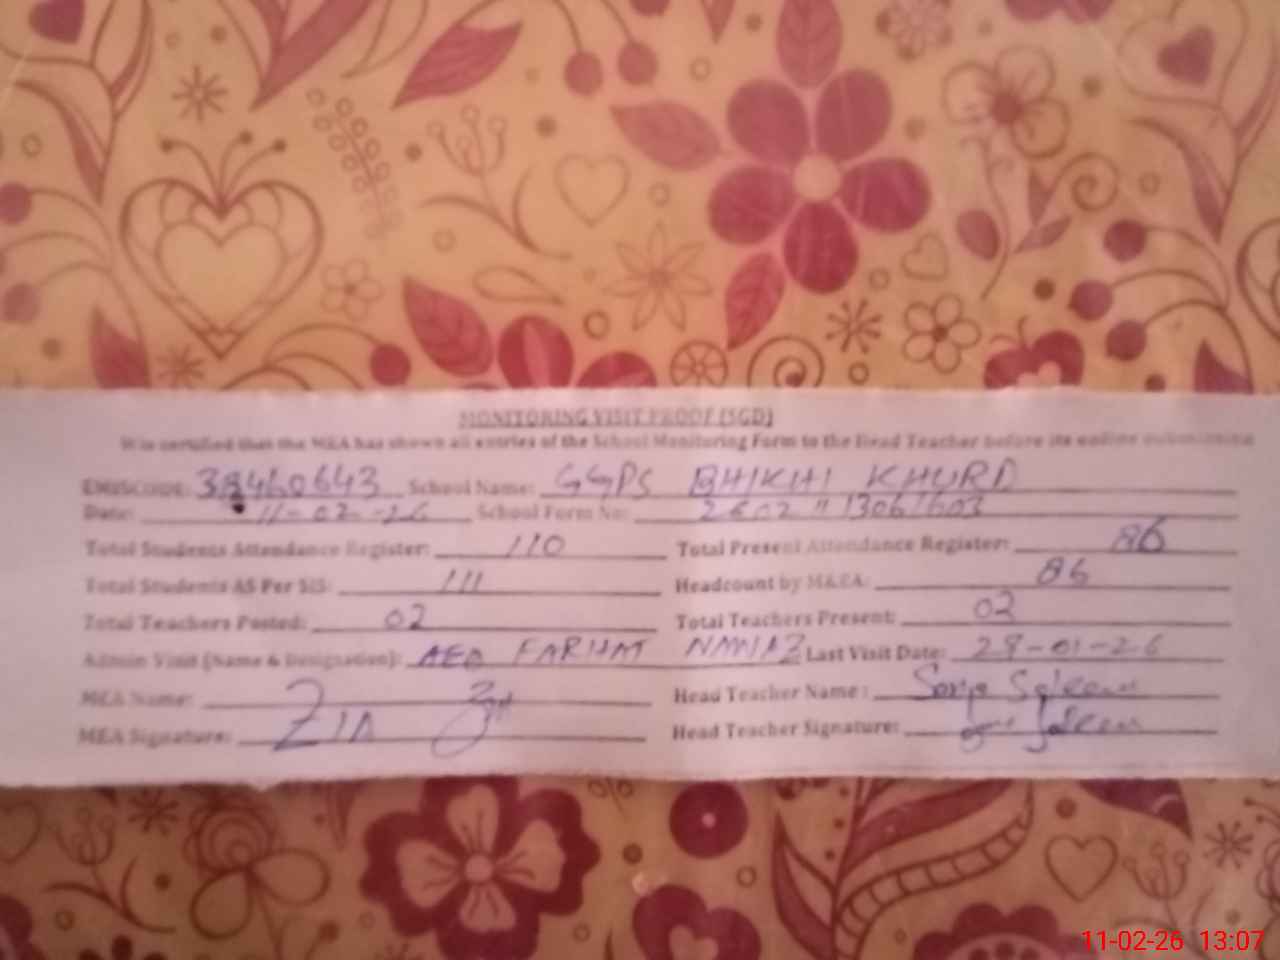 MONITORING VISIT PROOF (SGD)
It is certified that the MEA has shown all entries of the School Monitoring Form to the Head Teacher before its online submission
EMISCODE: 38460643 School Name: GGPS BHIKHI KHURD
Date: 11-02-26 School Form No: 26021113061603
Total Students Attendance Register: 110 Total Present Attendance Register: 86
Total Students AS Per SIS: 111 Headcount by MEA: 86
Total Teachers Posted: 02 Total Teachers Present: 02
Admin Visit (Name & Designation): AEO FARHAT NAWAZ Last Visit Date: 29-01-26
MEA Name: ZIA Head Teacher Name: Saleem
MEA Signature: Head Teacher Signature: Saleem
11-02-26 13:07